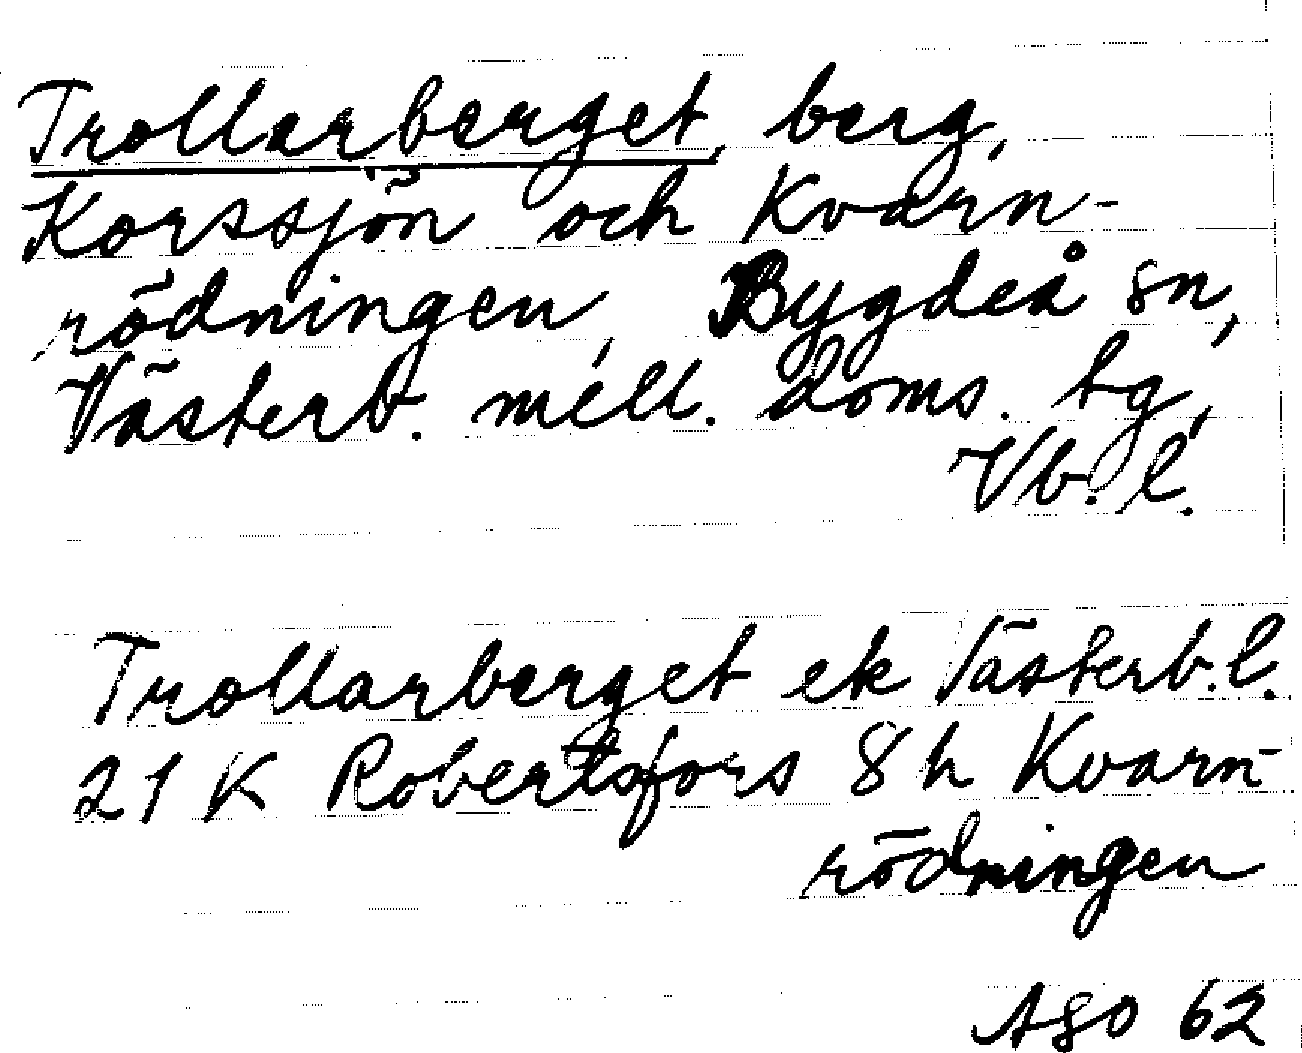 Trollarberget, berg,
Korssjön och Kvarn-
rödningen, Bygdeå sn,
Västerb. mell. doms. tg,
Vb. l.
Trollarberget ek Västerb.l.
21 K Robertsfors 8 h Kvarn-
rödningen
ASO 62